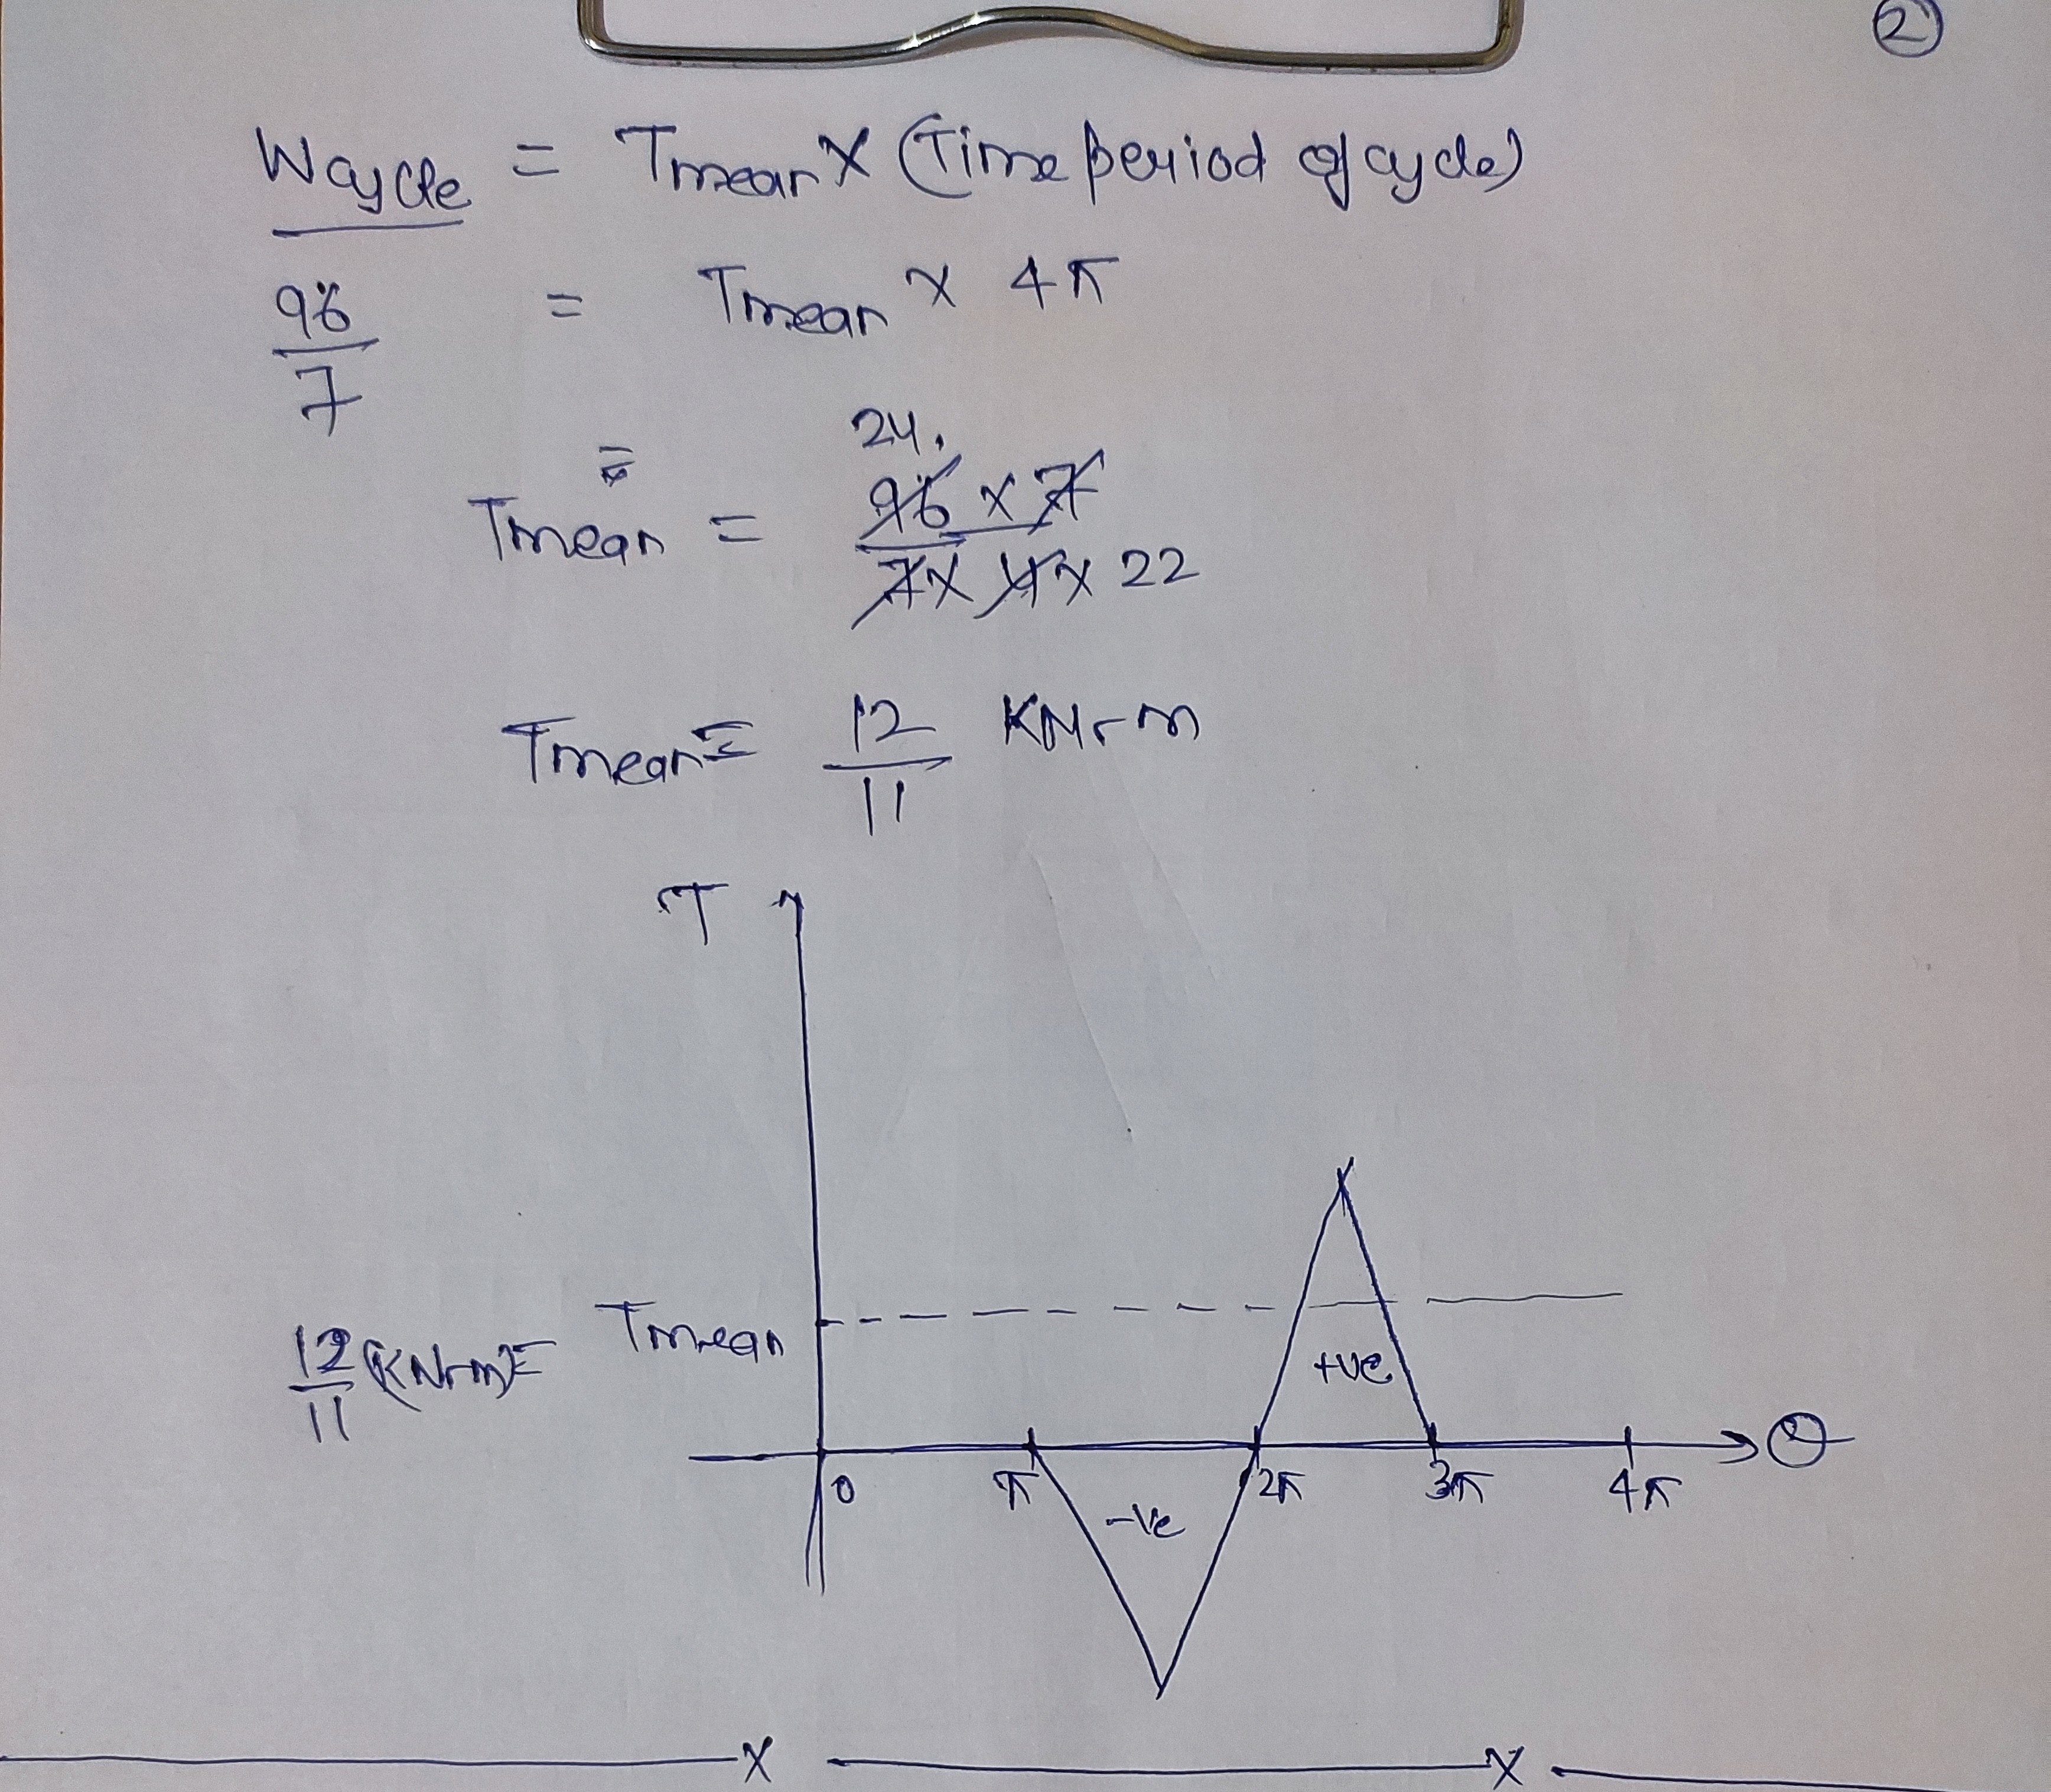 2
Wcycle = Tmean X (Time period of cycle)
96/7 = Tmean x 4π
=
24
Tmean = 96 x 7 / 7 x 4 x 22
Tmean = 12/11 KN-m
T
12/11 (KN-m) = Tmean
+ve
0 π 2π 3π 4π θ
-ve
X X